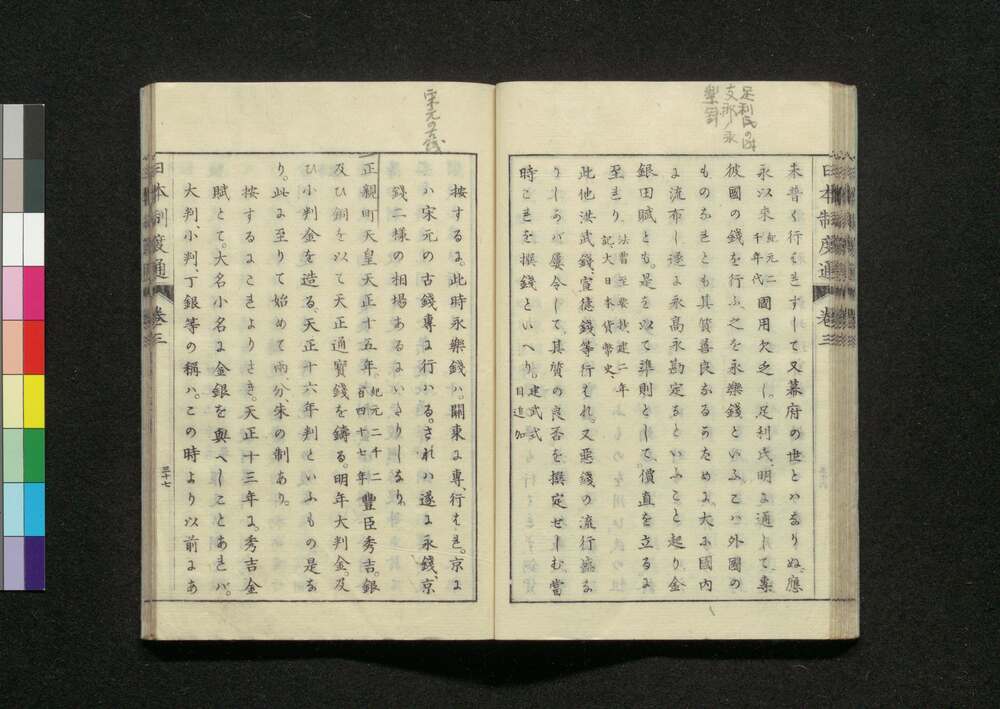 足利氏の時
支那ノ永
楽銭
来普く行はれずして又幕府の世とハなりぬ。應
永以来紀元二千年代國用欠乏し。足利氏、明に通じて、專
彼國の錢を行ふ、之を永樂錢といふこハ外國の
ものなれとも其質善良なるのため、大に國内
に流布し遂に永高永勘定などいふこと起り金
銀田賦とも。是を以て準則として、價直を立るに
至れり。法曹至要抄、建二年記、大日本貨幣史、
此他洪武錢、宣德錢等行もれ。又惡錢の流行盛な
りしかバ屢令して、其質の良否を撰定せしむ當
時これを撰錢といへり。建武式目追加
日本制度通 卷三
宋元の古銭
按するに。此時永樂錢ハ。關東に專、行はれ。京に
ハ宋元の古錢專に行ハる。されハ遂に永錢、京
錢二様の相場あるにいたりしなり。
正親町天皇天正十五年紀元二千二百四十七年豐臣秀吉。銀
及ひ銅を以て天正通寶錢を鑄る。明年大判金。及
ひ小判金を造る、天正十六年判といふもの是な
り。此に至りて始めて両、分、朱の制あり。
按するにこれよりさき。天正十三年に。秀吉金
賦とて。大名小名に金銀を與へしことあれバ。
大判、小判、丁銀等の稱ハ。この時より以前にあ
日本制度通 卷三
三十七